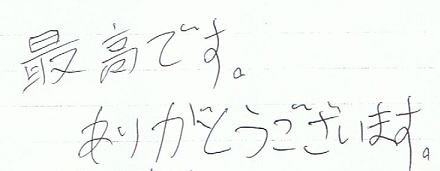 最高です。
ありがとうございます。